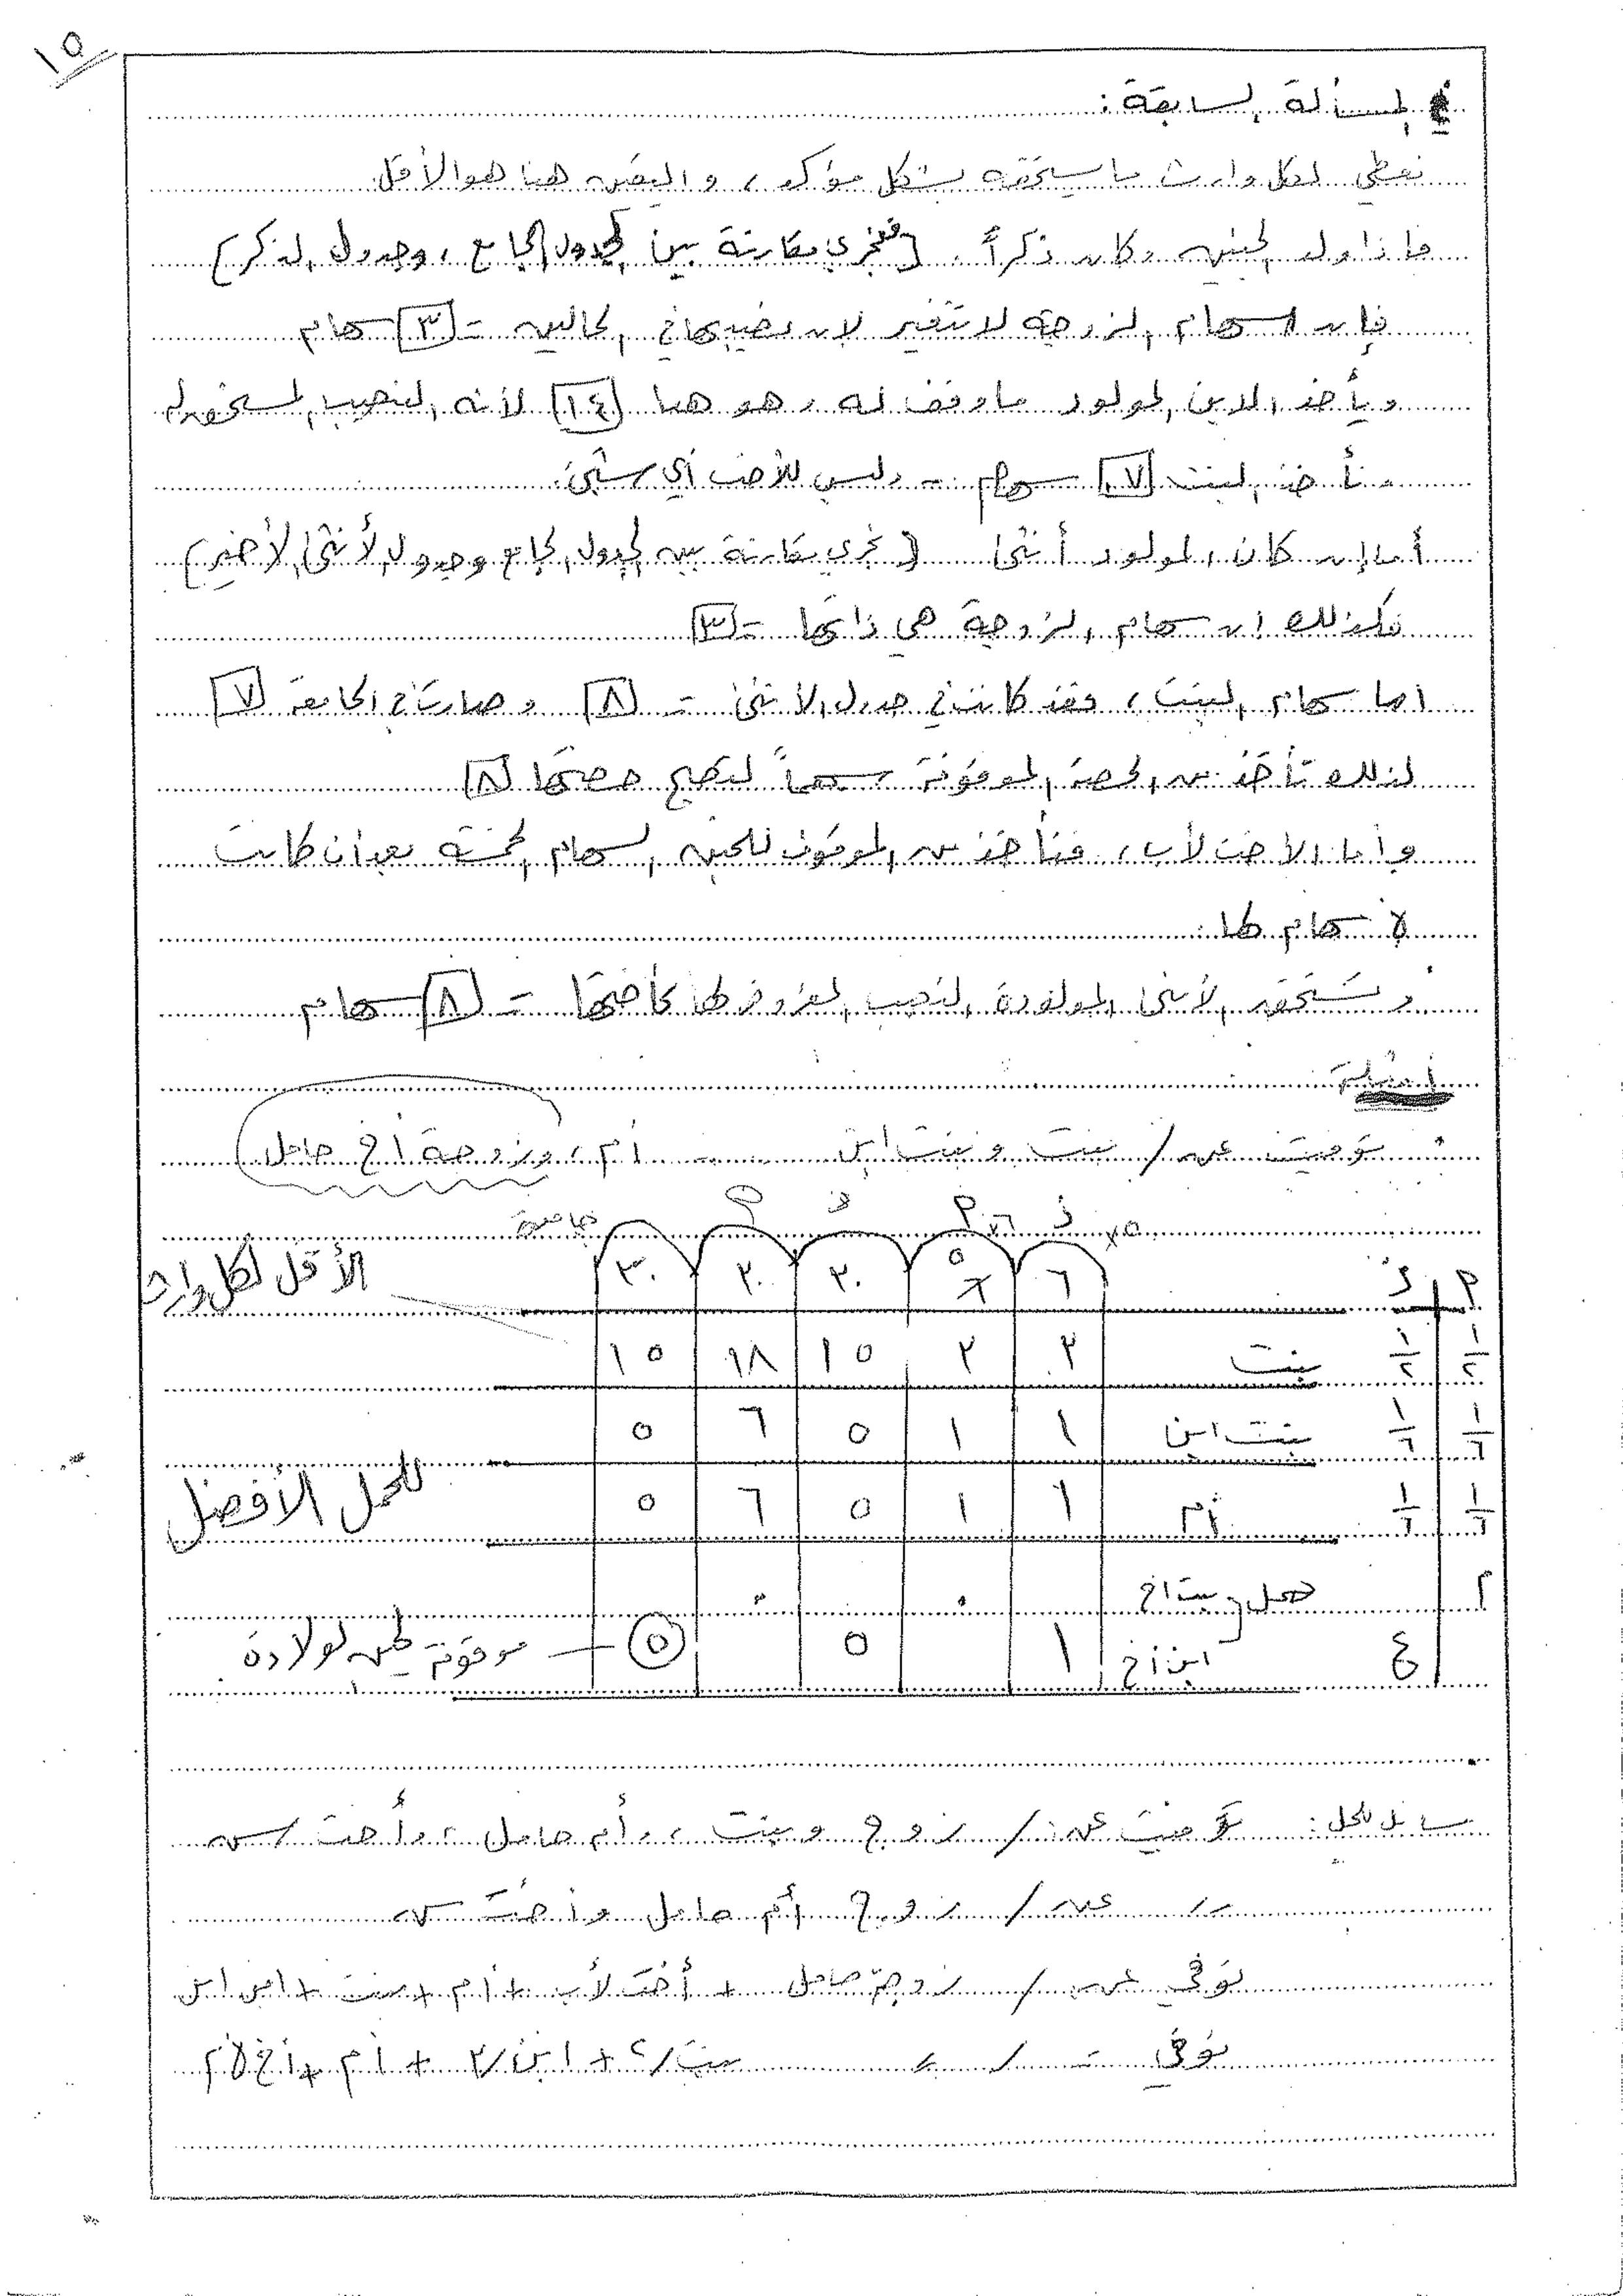 ١٥
في المسألة السابقة:
نعطي لكل وارث ما يستحقه بشكل مؤكد، واليقين هنا هو الأقل
فإذا ولد الجنين وكان ذكراً (فنجري مقارنة بين الجدول الجامع، وجدول الذكر)
فإن أسهام الزوجة لا تتغير لأن نصيبها في الحالين = ٣ سهام
ويأخذ الابن المولود ما وقف له وهو هنا ١٤ لأنه النصيب المستحق له
وتأخذ البنت ٧ سهام - وليس للأخت أي شيء.
أما إن كان المولود أنثى (نجري مقارنة بين الجدول الجامع وجدول الأنثى الأخير)
فكذلك إن سهام الزوجة هي ذاتها = ٣
أما سهام البنت، فقد كانت في جدول الأنثى = ٨ وصارت في الجامعة ٧
لذلك تأخذ من الحصة الموقوفة سهماً لتصبح حصتها ٨
وأما الأخت لأب، فتأخذ من الموقوف للجنين السهام الخمسة بعد أن كانت
لا سهام لها.
وتستحق الأنثى المولودة النصيب المفروض لها كأختها = ٨ سهام
أمثلة
توفيت عن / بنت وبنت ابن أم، وزوجة أخ حامل
جامعة
م ذ ٦ ٥ ٦ ٣٠ ٣٠ ٣٠ الأقل لكل وارث
١/٢ ١/٢ بنت ٣ ٣ ١٥ ١٨ ١٥
١/٦ ١/٦ بنت ابن ١ ١ ٥ ٦ ٥
١/٦ ١/٦ أم ١ ١ ٥ ٦ ٥ للحمل الأفضل
م حمل بنت أخ ٠ ٠
ع ابن أخ ١ ٥ ٥ موقوفة لحين الولادة
مسائل للحل: توفيت عن / زوج وبنت، وأم حامل، وأخت / س
// عن / زوج أم حامل وأخت س
توفي عن / زوجة حامل + أخت لأب + أم + بنت + ابن ابن
توفي = / // بنت / ٢ + ابن / ٢ + أم + أخ لأم